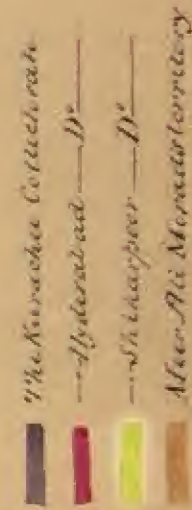 The Kurachee Collectorate
— Hyderabad — D°
— Shikarpoor — D°
Meer Ali Morad's territory